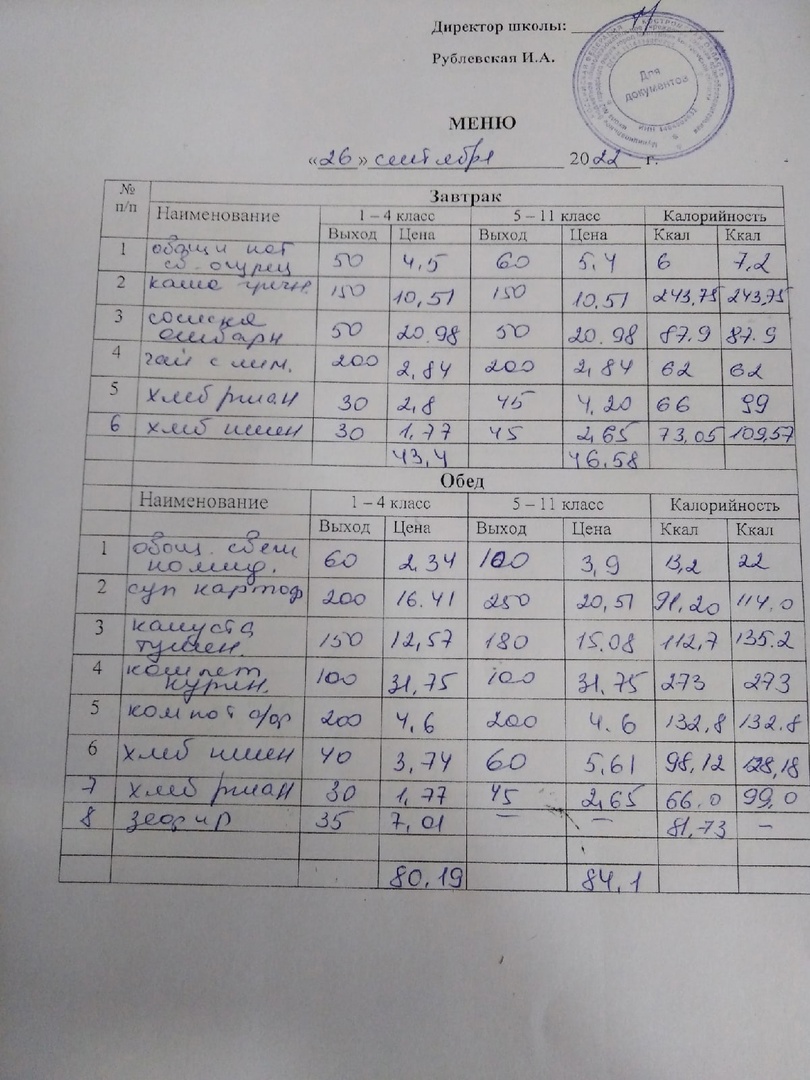 Директор школы:
Рублевская И.А.
Для
документов
МЕНЮ
«26» сентября 2022 г.
№ п/п Завтрак
Наименование 1 – 4 класс 5 – 11 класс Калорийность
Выход Цена Выход Цена Ккал Ккал
1 овощи нат
св. огурец 50 4,5 60 5,4 6 7,2
2 каша гречн. 150 10,51 150 10,51 243,75 243,75
3 сосиска
отварн 50 20.98 50 20.98 87.9 87.9
4 чай с лим. 200 2,84 200 2,84 62 62
5 хлеб ржан 30 2,8 45 4,20 66 99
6 хлеб пшен 30 1,77 45 2,65 73,05 109,57
43,4 46.58
Обед
Наименование 1 – 4 класс 5 – 11 класс Калорийность
Выход Цена Выход Цена Ккал Ккал
1 овощ. свеж
помид. 60 2,34 100 3,9 13,2 22
2 суп картоф 200 16.41 250 20,51 91,20 114.0
3 капуста
тушен. 150 12,57 180 15.08 112,7 135.2
4 котлет
курин. 100 31,75 100 31,75 273 273
5 компот с/фр 200 4,6 200 4.6 132,8 132.8
6 хлеб пшен 40 3,74 60 5,61 98,12 128,18
7 хлеб ржан 30 1,77 45 2,65 66.0 99,0
8 зефир 35 7,01 – – 81,73 –
80,19 84,1